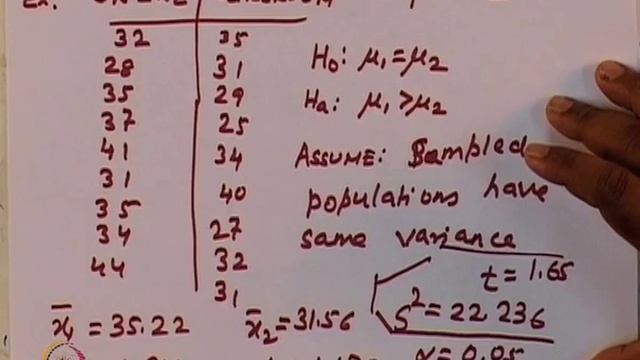 Ex.
32 35
28 31
35 29
37 25
41 34
31 40
35 27
34 32
44 31
H₀: μ₁=μ₂
Hₐ: μ₁>μ₂
ASSUME: Sampled
populations have
same variance
t=1.65
S²=22.236
x̄₁ =35.22 x̄₂=31.56
α=0.05